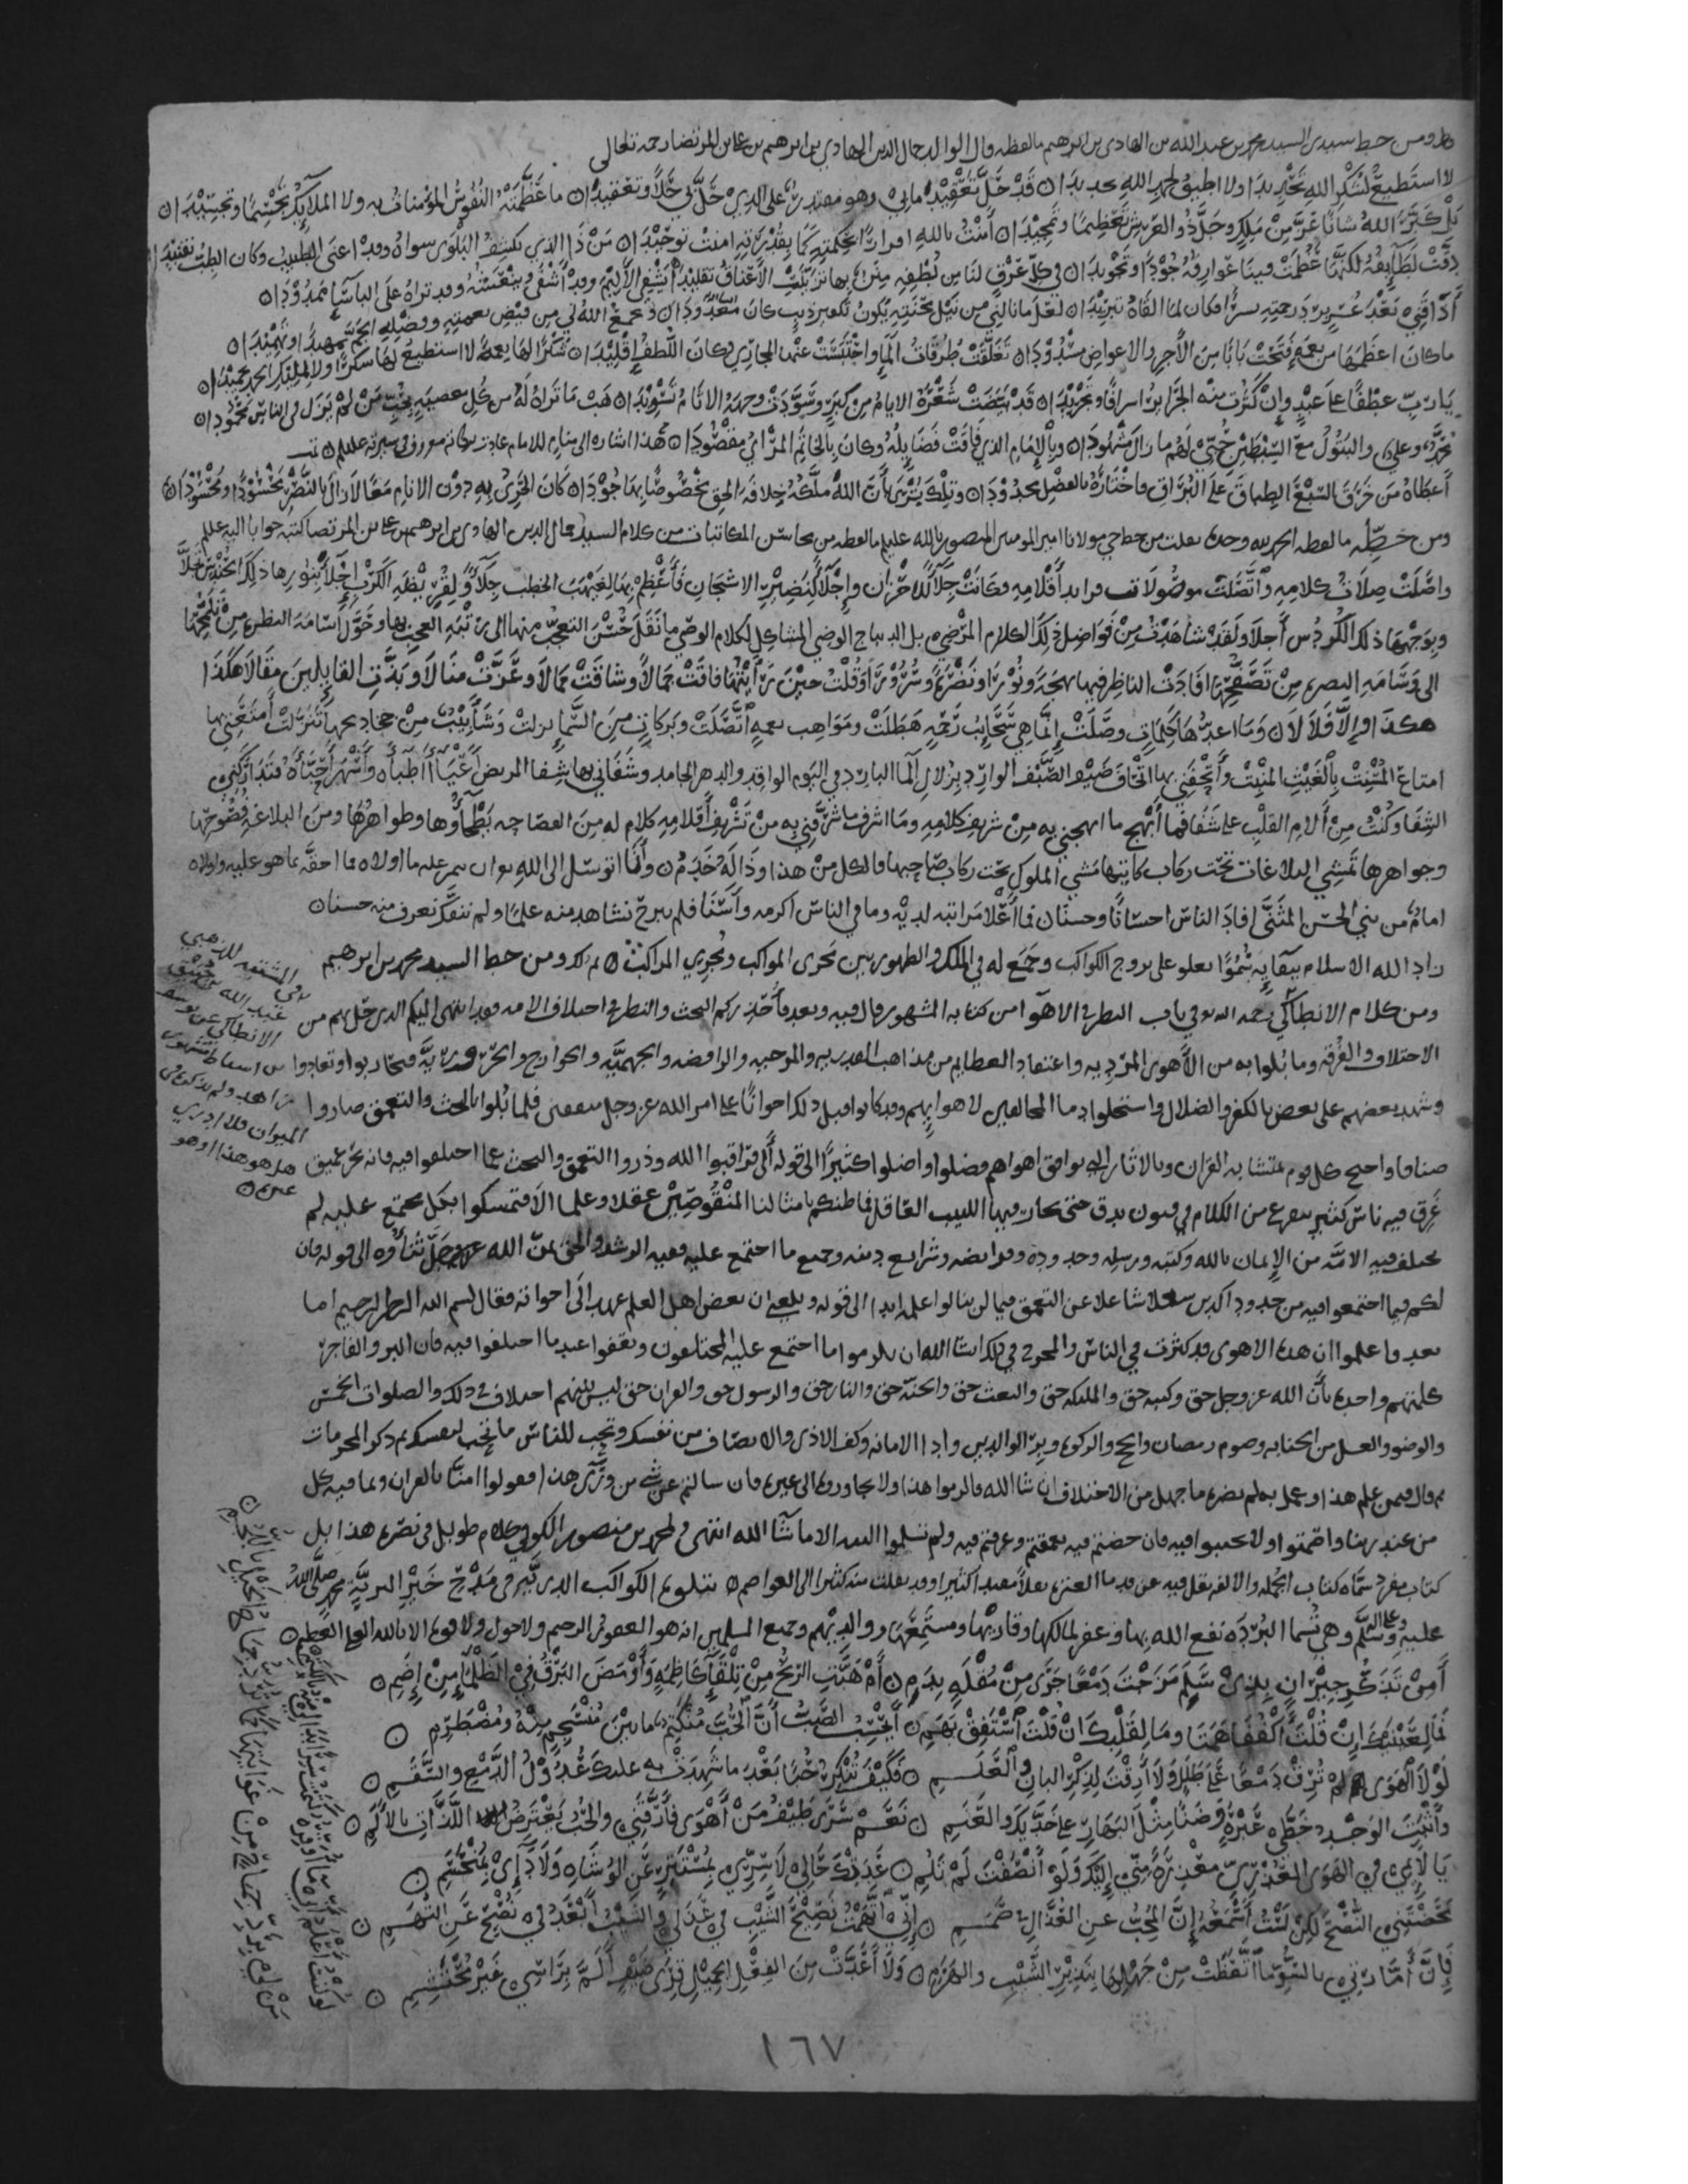 ومن خط سيدي السيد محمد بن عبد الله بن الهادي بن ابرهيم ما لفظه قال الوالد جمال الدين الهادي بن ابرهيم بن علي بن المرتضى رحمه الله تعالى
لا استطيع لشكر الله تحديدا ولا اطيق لحمد الله تعديدا قد حل تعقيد ما بي وهو مقتدر على الذي حل بي حلا وتعقيدا ما عظمته النفوس المؤمنات به ولا الملائك تجسيما وتجسيدا
بل كبر الله شانا عز من ملك وجل ذو العرش تعظيما وتمجيدا امنت بالله اقرارا بحكمته كما بقدرته امنت توحيدا من ذا الذي يكشف البلوى سواه وقد اعي الطبيب وكان الطب تفنيدا
دقت لطائفه لكنها عظمت فينا عوارفه جودا وتجويدا في كل عرق لنا من لطفه منن بها تزينت الاعناق تقليدا
اذاقني بعد عسر برد رحمته يسرا فكان لما القاه تبريدا لعل ما نالني من نيل محنته يكون تكفير ذنب كان معدودا
ما كان اعظمها من نعمة فتحت بابا من الأجر والاعواض مسدودا تغلقت طرقات الما واحتبست عنها المجاري وكان اللطف إقليدا شكرا لها نعمة لا استطيع لها شكرا
يا رب عطفا على عبد وإن كثرت منه الجرائر اسرافا وتجريدا قد بيضت شعره الايام من كبر وسودت وجهه الاثام تسويدا هب ما تراه له من كل معصية
محمد وعلي والبتول مع السبطين حبي لهم ما زال مشهودا وبالإمام الذي فاقت فضايله وكان بالخاتم المرائي مقصودا هذا اشاره الى منام للامام
أعطاه من خرق السبع الطباق على البراق واختاره بالفضل محدودا وتلك بشرى بأن الله ملكه خلافة الحق مخصوصا بها جودا
ومن خطه ما لفظه الحمد لله وحده نقلت من خط حي مولانا امير المومنين المنصور بالله عليلم ما لفظه من محاسن المكاتبات من كلام السيد جمال الدين الهادي بن ابرهيم بن علي بن المرتضى كتبه جوابا اليه عليلم
واصلت صلات كلامه واتصلت موصولات فرايد أقلامه وكانت جلآ للاحزان وإجلآ لنضير الاشجان فأعظم بها لغيهب الخطب جلآ
وبوجهها ذلك الكردس أجلا ولقد شاهدت من فواضل ذلك الكلام المرضي بل الديباج الوضي المشاكل لكلام الوصي ما نقل حسن التعجب منها الى رتبه العجب بها
الى وسامه البصر من تصفحها افادت الناظر فيها بهجة ونورا ونضرة وسرورا وقلت حين رأيتها فاقت جمالا وشاقت كمالا وعزت منالا وبذت القايلين مقالا هكذا
هكذا والا فلا لا وما اعدها كلمات وصلت إنما هي سحايب رحمة هطلت ومواهب نعمة اتصلت وبركات من السما نزلت
امتاع المنبت بالغيث المنبت وأتحفني بها اتحاف ضيف الضيف الوارد بزلال الما البارد في اليوم الواقد والدهر الجامد وشفاني بها شفا المريض
الشفا وكنت من ألام القلب على شفا فما أبهج ما ابهجني به من شريف كلامه وما اشرف ما شرفني به من تشريف أقلامه كلام له من الفصاحة بطحاؤها وظواهرها ومن البلاغه فصوصها
وجواهرها تمشي البلاغات تحت ركاب كاتبها مشي الملوك تحت ركاب صاحبها قالكل من هذا وذا له خدم وأنا اتوسل الى الله
امام من بني الحسن المثنى افاد الناس احسانا وحسنا فما أعلا مراتبه لديه وما في الناس اكرمه وأسنا فلم نبرح نشاهد منه علما ولم ننفك نعرف منه حسنا
زاد الله الاسلام ببقايه سموا يعلو على بروج الكواكب وجمع له في الملك والظهور بين مجرى المواكب ومجري المراكب ومن خط السيد محمد بن ابرهيم
ومن كلام الانطاكي رحمه الله في باب النظر في الاهوآ من كتابه المشهور قال فيه وبعد فأحذركم البحث والنظر في اختلاف الامه فقد انتهى اليكم الذي حل بهم من
الاختلاف والفرقه وما بلوا به من الأهوى المردية واعتقاد العظايم من مذاهب القدريه والمرجيه والرافضه والجهميه والخوارج والحروريه فتحاربوا وتعادوا
وشهد بعضهم على بعض بالكفر والضلال واستحلوا دما المخالفين لاهوايهم وقد كانوا قبل ذلك اخوانا على امر الله عز وجل متفقين فلما بلوا بالبحث والتعمق صاروا
صنافا واحتج كل قوم بمتشابه القران وبالاثار التي توافق اهواهم فضلوا واضلوا كثيرا الى قوله ألى فراقبوا الله وذروا التعمق والبحث عما اختلفوا فيه فانه بحر عميق
غرق فيه ناس كثير يتفرع من الكلام في فنون يدق حتى يحار فيها اللبيب العاقل فما ظنكم بامثالنا المنقوصين عقلا وعلما الا فتمسكوا بكل مجتمع عليه لم
يختلف فيه الامة من الإيمان بالله وكتبه ورسله وحدوده وفرايضه وشرايع دينه وجميع ما اجتمع عليه ففيه الرشد والحق بمن الله عز وجل ثناؤه الى قوله فان
لكم فيما اجتمعوا فيه من حدود الدين شغلا شاغلا عن التعمق فيما لن ينالوا علمه ابدا الى قوله وبلغني ان بعض اهل العلم عهد الى اخوانه فقال بسم الله الرحمن الرحيم اما
بعد فاعلموا ان هذه الاهوى قد كثرت في الناس والمخرج في ذلك انشا الله ان يلزموا ما اجتمع عليه المختلفون ويقفوا عند ما اختلفوا فيه فان البر والفاجر
كلمتهم واحدة بأن الله عز وجل حق وكتبه حق والملئكة حق والبعث حق والجنة حق والنار حق والرسول حق والقران حق ليس بينهم اختلاف في ذلك والصلوات الخمس
والوضو والغسل من الجنابه وصوم رمضان والحج والزكوة وبر الوالدين وادا الامانه وكف الاذى والانصاف من نفسك وتحب للناس ما تحب لنفسك ثم ذكر المحرمات
ثم قال فمن علم هذا وعمل به لم يضره ما جهل من الاختلاف ان شا الله فالزموا هذا ولا تجاوزوه الى غيره فان سالتم عن شي من ورآى هذا فقولوا امنا بالقران وبما فيه كل
من عند ربنا واصمتوا ولا تجيبوا فيه فان خضتم فيه تعمقتم وغرقتم فيه ولم تسلموا الا ما شآ الله انتهى ولمحمد بن منصور الكوفي كلام طويل في نصرة هذا بل
كتاب مفرد سماه كتاب الجمله والالفه نقل فيه عن قدما العتره نقلا مفيدا كثيرا وقد نقلت منه كثيرا الى العواصم تتلوه الكواكب الدريه في مدح خير البريه محمد صلى الله
عليه وعلى اله وسلم وهي تسما البردة نفع الله بها وغفر لمالكها وقاريها ومستمعها ووالديهم وجميع المسلمين انه هو الغفور الرحيم ولا حول ولا قوة الا بالله العلي العظيم
أمن تذكر جيران بذي سلم مزجت دمعا جرى من مقلة بدم أم هبت الريح من تلقآء كاظمة وأومض البرق في الظلمآ من إضم
فما لعينيك ان قلت اكففا همتا وما لقلبك ان قلت استفق يهم أيحسب الصب أن الحب منكتم ما بين منسجم منه ومضطرم
لولا الهوى لم ترق دمعا على طلل ولا أرقت لذكر البان والعلم فكيف تنكر حبا بعد ما شهدت به عليك عدول الدمع والسقم
وأثبت الوجد خطي عبرة وضنا مثل البهار على خديك والعنم نعم سرى طيف من أهوى فأرقني والحب يعترض اللذات بالألم
يا لائمي في الهوى العذري معذرة مني إليك ولو أنصفت لم تلم عدتك حالي لا سري بمستتر عن الوشاه ولا دائي بمنحسم
محضتني النصح لكن لست أسمعه إن المحب عن العذال في صمم إني اتهمت نصيح الشيب في عذلي والشيب أبعد في نصح عن التهم
فإن أمارتي بالسوء ما اتعظت من جهلها بنذير الشيب والهرم ولا أعدت من الفعل الجميل قرى ضيف ألم برأسي غير محتشم
لو كنت أعلم اني ما أوقره كتمت سرا بدا لي منه بالكتم
من لي برد جماح من غوايتها كما يرد جماح الخيل باللجم
في المشتبه للذهبي
عبد الله بن خبيق
الانطاكي عن يوسف
بن اسباط مشهور
هل هو هذا او هو
غيره
١٦٧